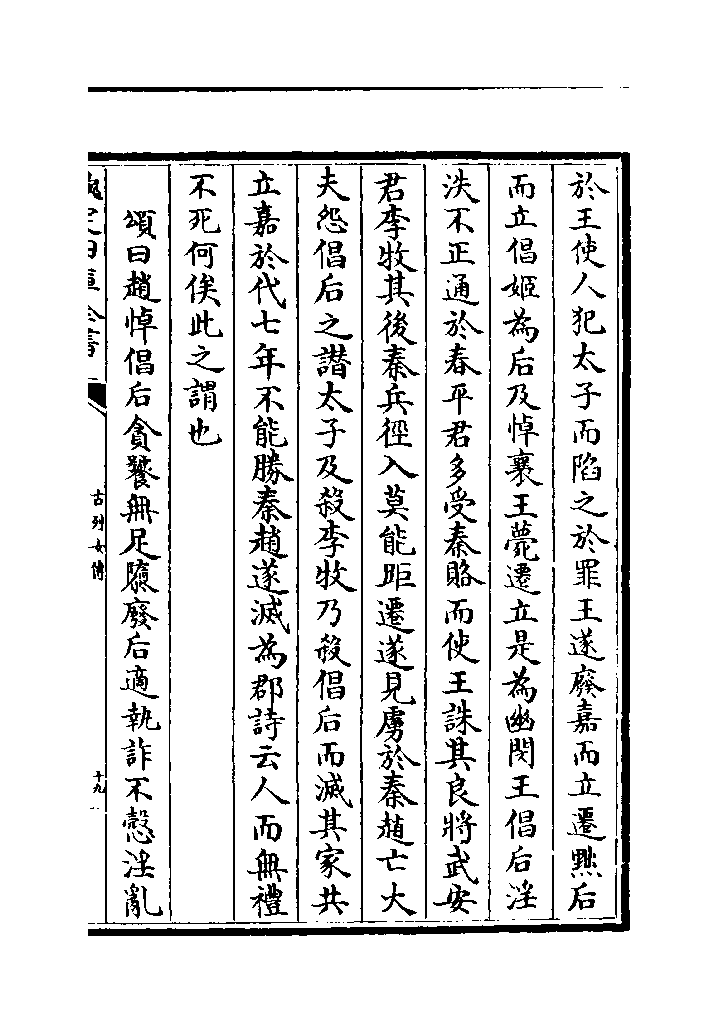 於王使人犯太子而陷之於罪王遂廢嘉而立遷黜后
而立倡姬為后及悼襄王薨遷立是為幽閔王倡后淫
泆不正通於春平君多受秦賂而使王誅其良將武安
君李牧其後秦兵徑入莫能距遷遂見虜於秦趙亡大
夫怨倡后之譖太子及殺李牧乃殺倡后而滅其家共
立嘉於代七年不能勝秦趙遂滅為郡詩云人而無禮
不死何俟此之謂也
頌曰趙悼倡后貪饕無足隳廢后適執詐不愨淫亂
欽定四庫全書
古列女傳
十九